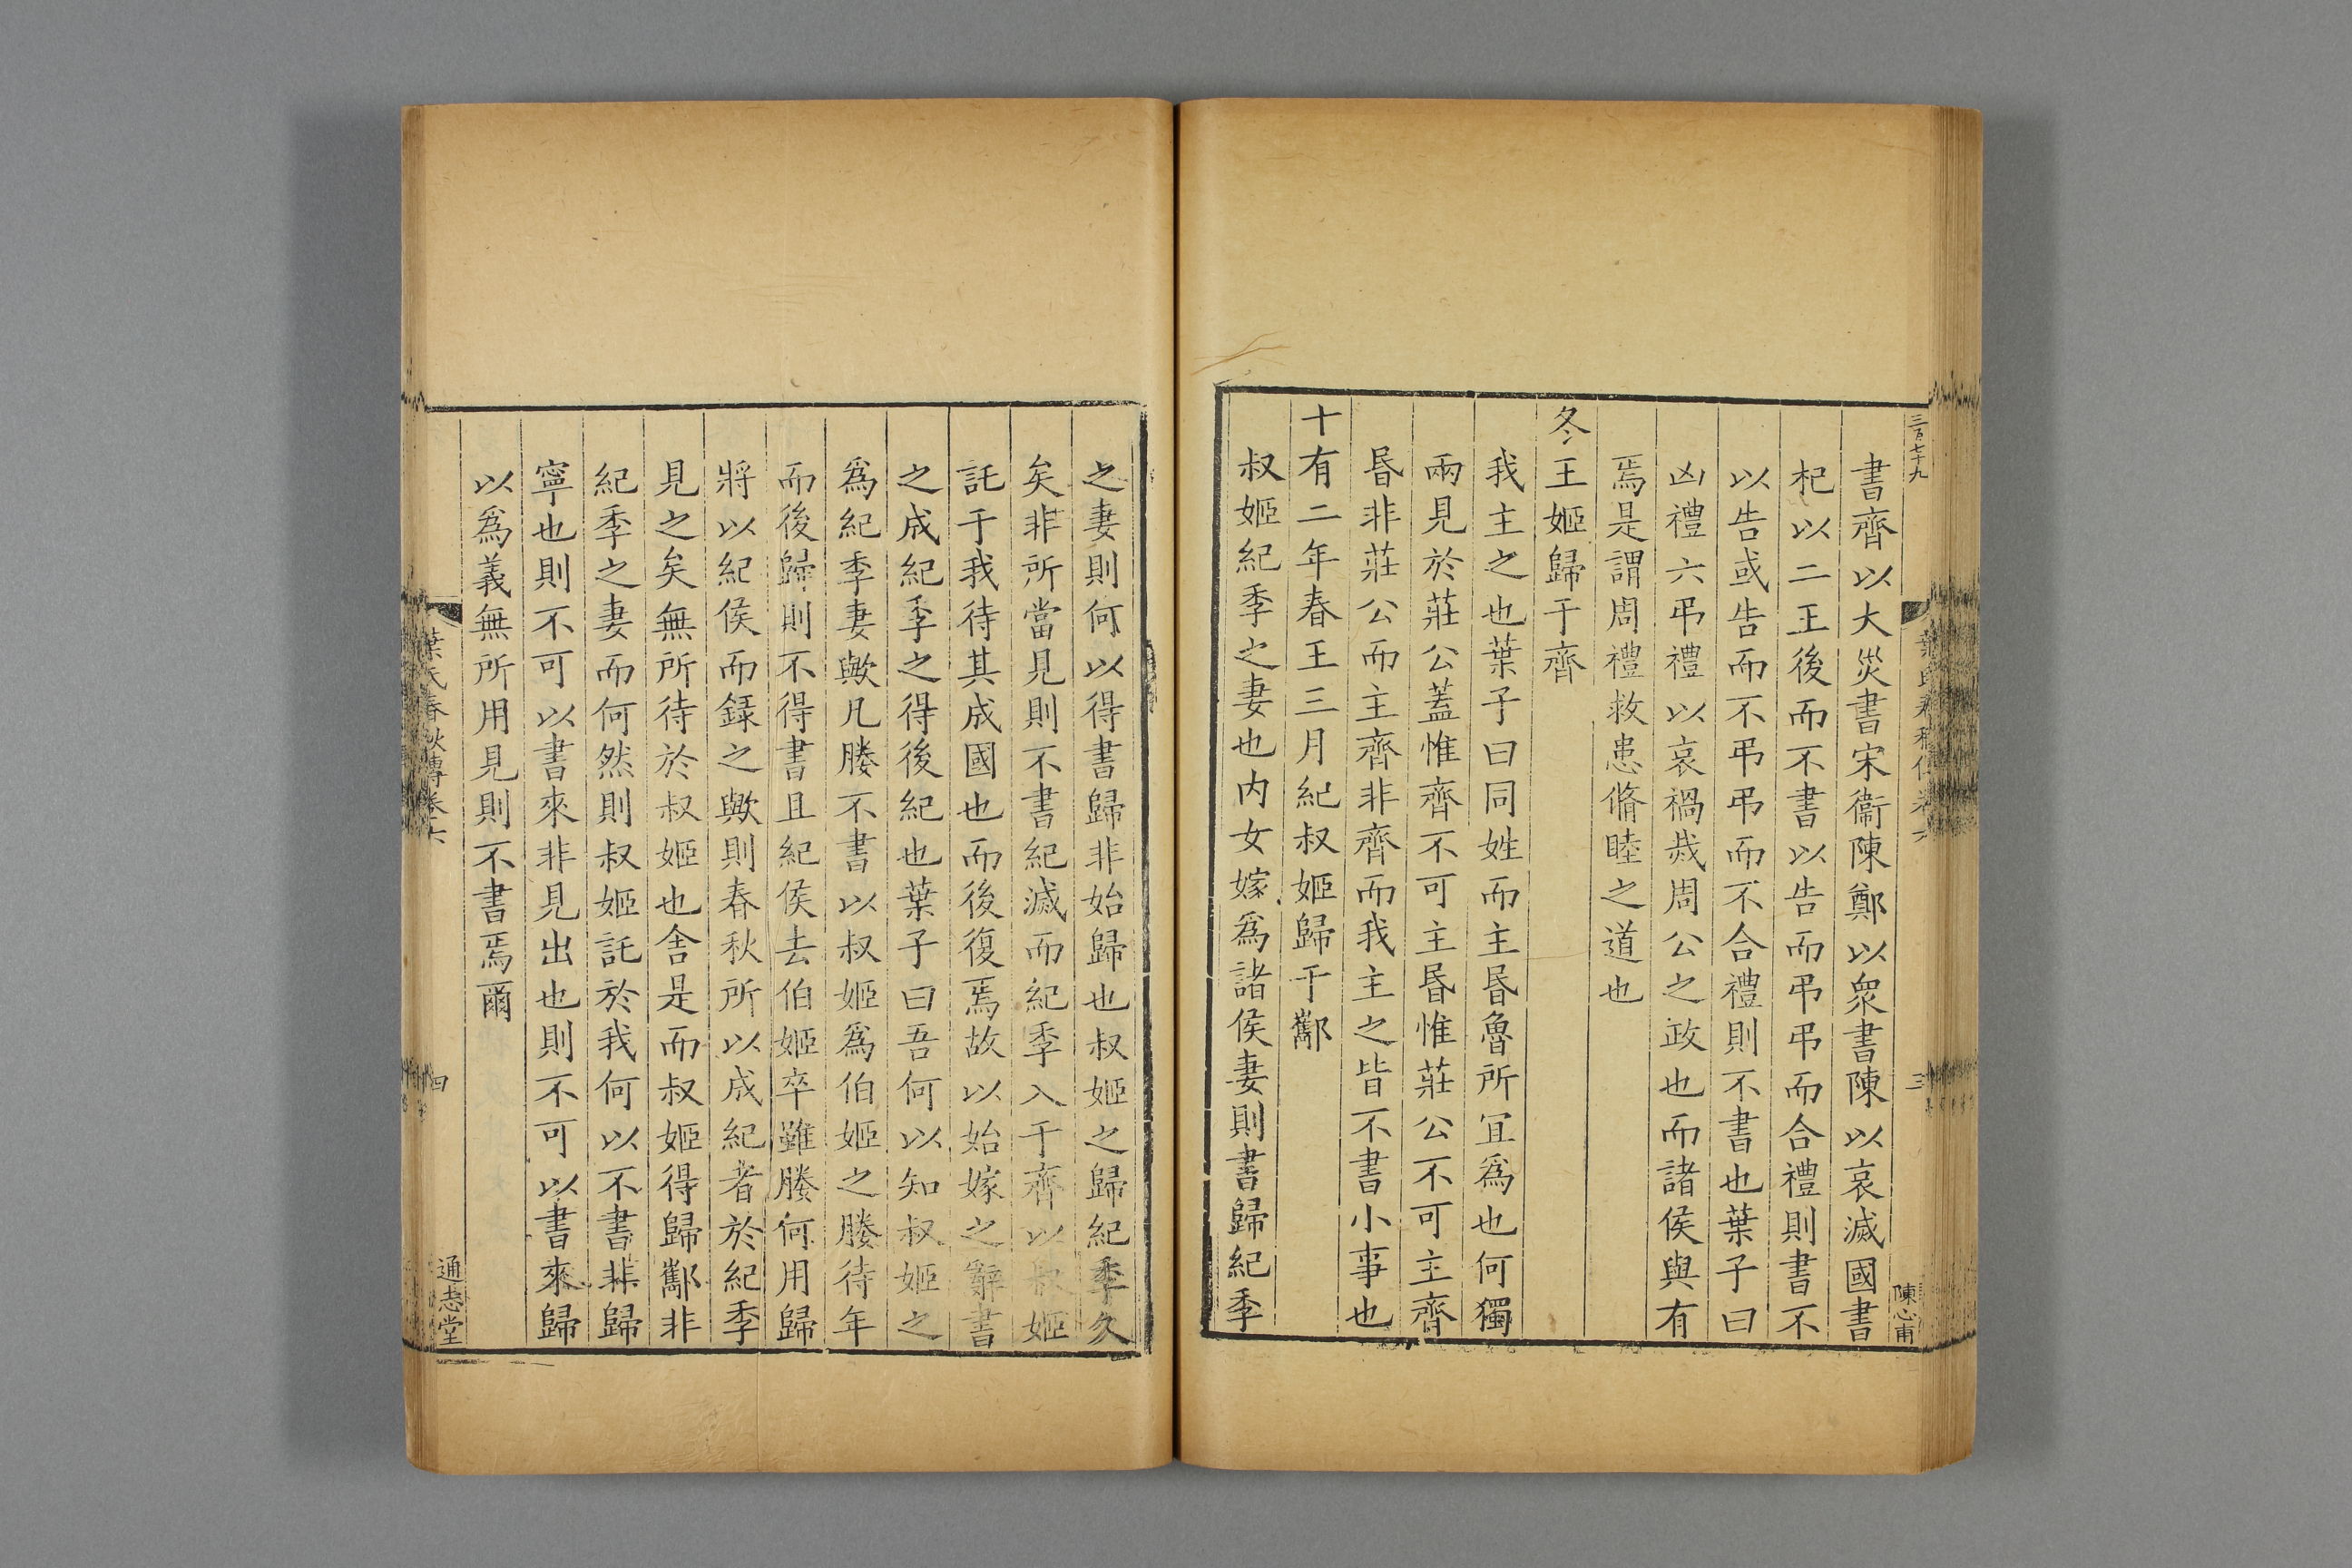 三百七十九
葉氏春秋傳卷六
三
陳心甫
書齊以大災書宋衞陳鄭以衆書陳以哀滅國書
杞以二王後而不書以告而弔弔而合禮則書不
以告或告而不弔弔而不合禮則不書也葉子曰
凶禮六弔禮以哀禍烖周公之政也而諸侯與有
焉是謂周禮救患脩睦之道也
冬王姬歸于齊
我主之也葉子曰同姓而主昏魯所宜爲也何獨
兩見於莊公蓋惟齊不可主昏惟莊公不可主齊
昏非莊公而主齊非齊而我主之皆不書小事也
十有二年春王三月紀叔姬歸于酅
叔姬紀季之妻也内女嫁爲諸侯妻則書歸紀季
之妻則何以得書歸非始歸也叔姬之歸紀季久
矣非所當見則不書紀滅而紀季入于齊以叔姬
託于我待其成國也而後復焉故以始嫁之辭書
之成紀季之得後紀也葉子曰吾何以知叔姬之
爲紀季妻歟凡媵不書以叔姬爲伯姬之媵待年
而後歸則不得書且紀侯去伯姬卒雖媵何用歸
將以紀侯而録之歟則春秋所以成紀者於紀季
見之矣無所待於叔姬也舍是而叔姬得歸酅非
紀季之妻而何然則叔姬託於我何以不書非歸
寧也則不可以書來非見出也則不可以書來歸
以爲義無所用見則不書焉爾
葉氏春秋傳卷六
四
通志堂